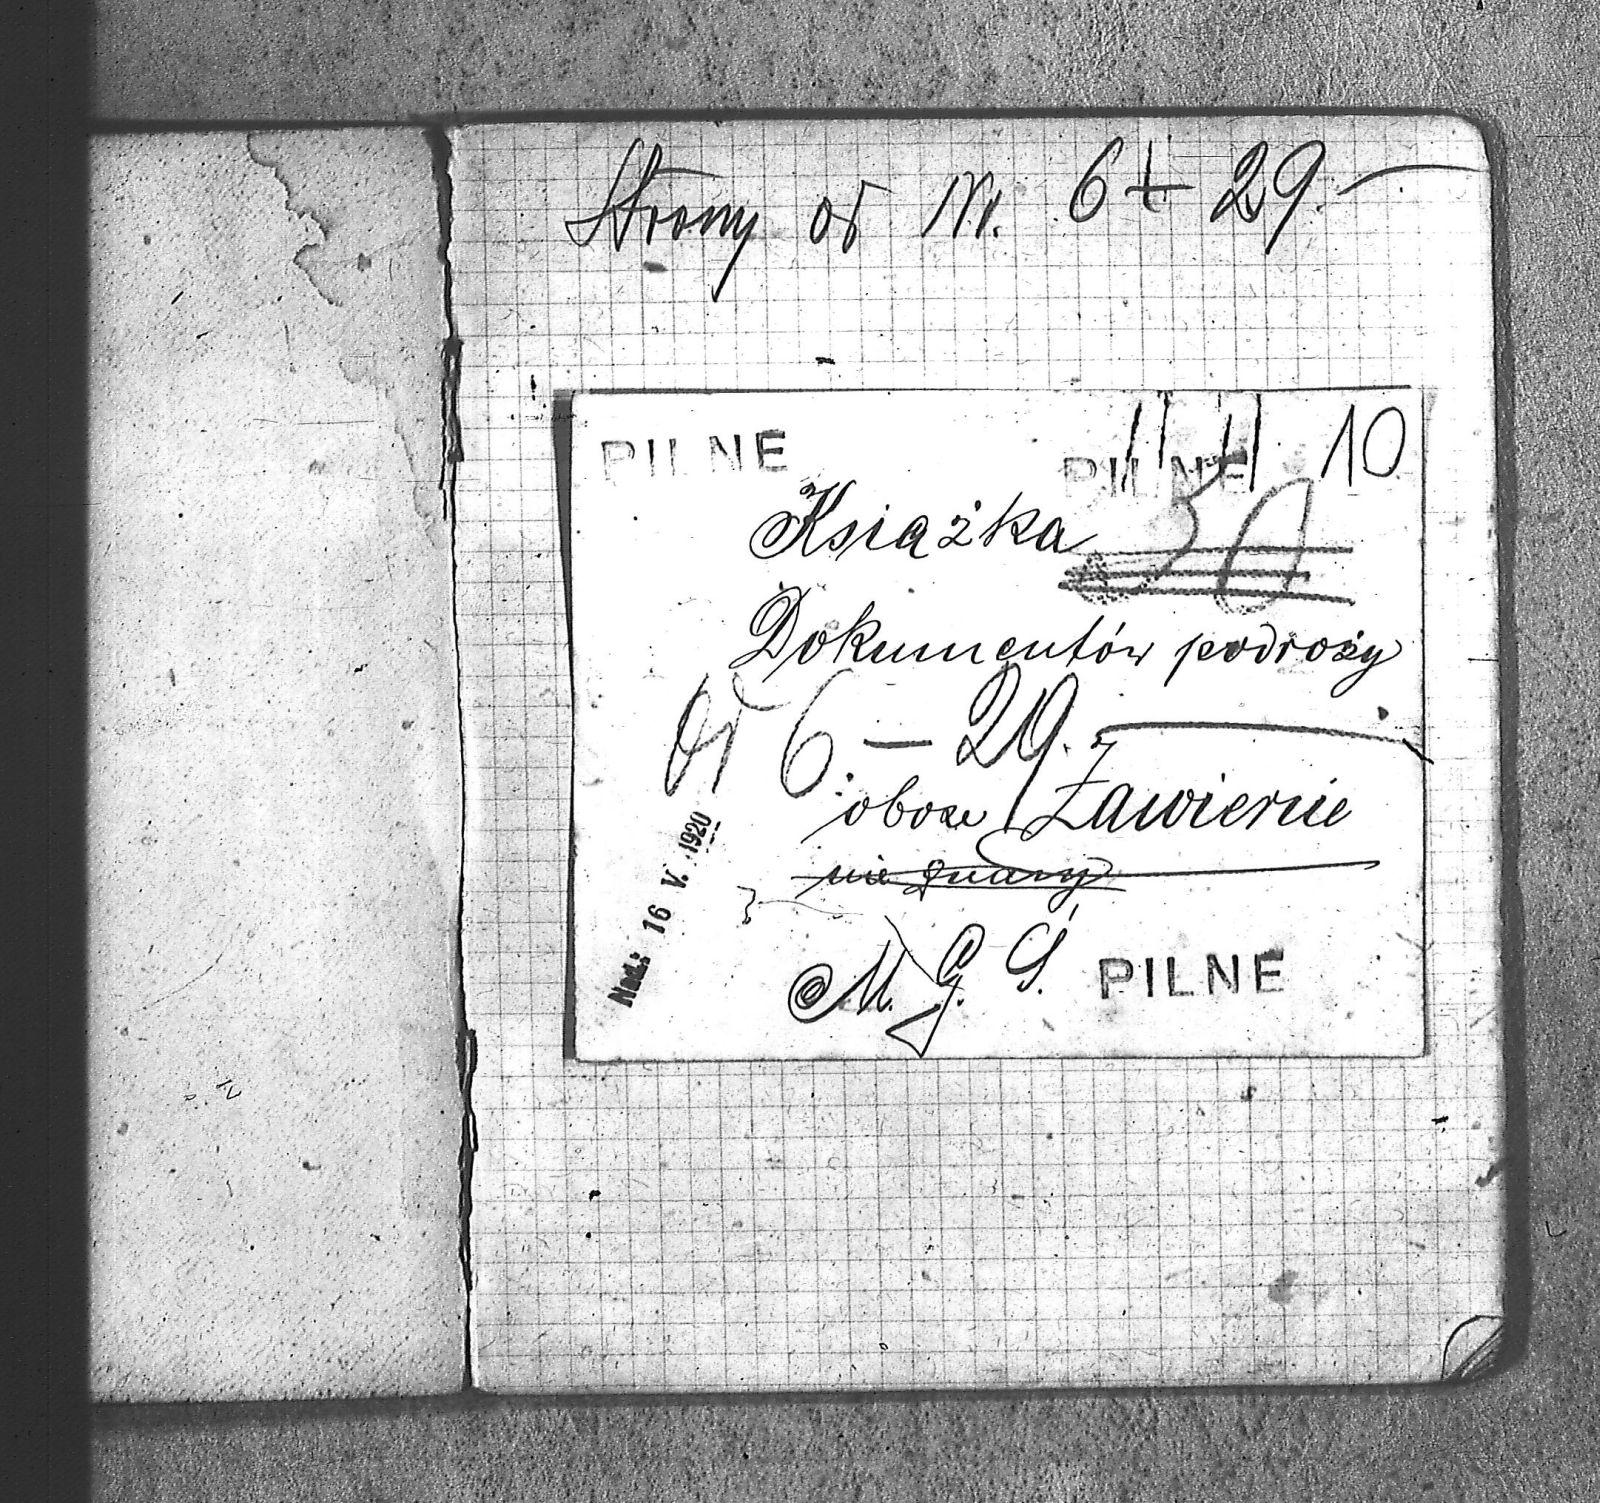 Strony od Nr. 6 + 29.
PILNE PILNE 10
Książka
30
Dokumentów podroży
Od 6 — 29.
z
obozu Zawiercie
nie znany
Nad.: 16 V. 1920
M. G. Ś. PILNE